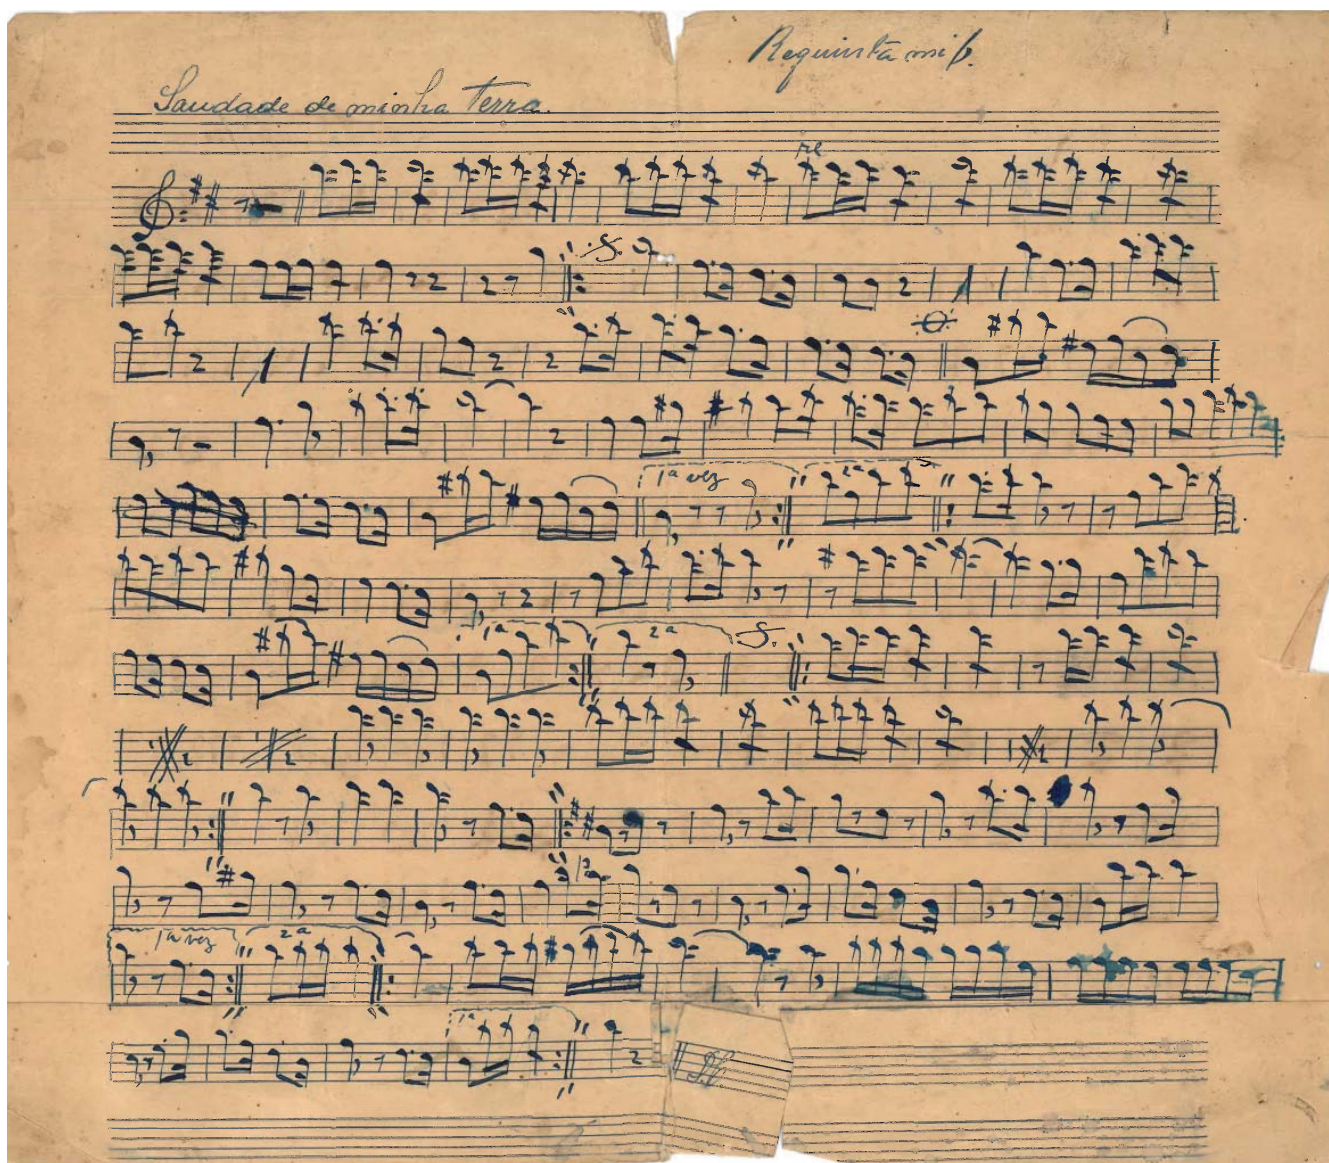 Requinta mi b.
Saudade de minha Terra.
re
1ª vez
2ª
1ª
2ª
1ª vez
2ª
1ª